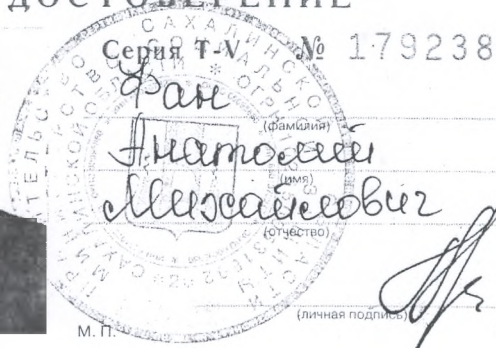 УДОСТОВЕРЕНИЕ
Серия Т-V № 179238
Фан
(фамилия)
Анатолий
(имя)
Михайлович
(отчество)
(личная подпись)
М. П.